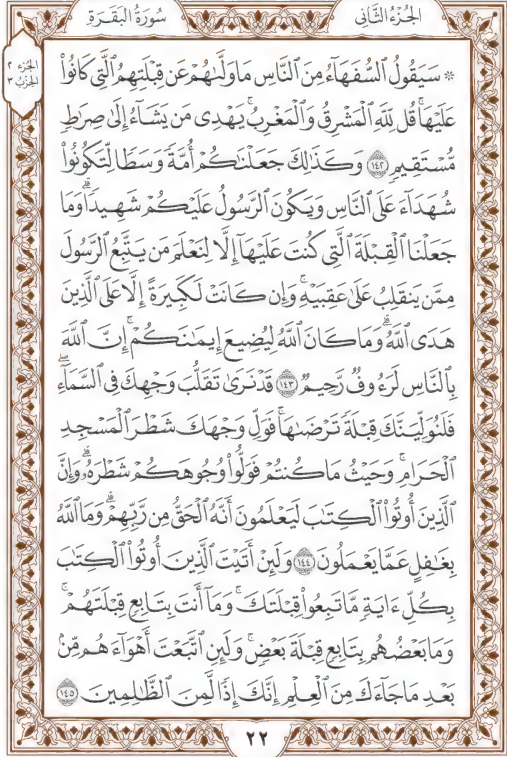 الجُزْءُ الثَّانِي
سُورَةُ البَقَرَةِ
الجزء ٢
الحزب ٣
۞ سَيَقُولُ ٱلسُّفَهَآءُ مِنَ ٱلنَّاسِ مَا وَلَّىٰهُمْ عَن قِبْلَتِهِمُ ٱلَّتِى كَانُوا۟
عَلَيْهَا ۚ قُل لِّلَّهِ ٱلْمَشْرِقُ وَٱلْمَغْرِبُ ۚ يَهْدِى مَن يَشَآءُ إِلَىٰ صِرَٰطٍ
مُّسْتَقِيمٍ ١٤٢ وَكَذَٰلِكَ جَعَلْنَٰكُمْ أُمَّةً وَسَطًا لِّتَكُونُوا۟
شُهَدَآءَ عَلَى ٱلنَّاسِ وَيَكُونَ ٱلرَّسُولُ عَلَيْكُمْ شَهِيدًا ۗ وَمَا
جَعَلْنَا ٱلْقِبْلَةَ ٱلَّتِى كُنتَ عَلَيْهَآ إِلَّا لِنَعْلَمَ مَن يَتَّبِعُ ٱلرَّسُولَ
مِمَّن يَنقَلِبُ عَلَىٰ عَقِبَيْهِ ۚ وَإِن كَانَتْ لَكَبِيرَةً إِلَّا عَلَى ٱلَّذِينَ
هَدَى ٱللَّهُ ۗ وَمَا كَانَ ٱللَّهُ لِيُضِيعَ إِيمَٰنَكُمْ ۚ إِنَّ ٱللَّهَ
بِٱلنَّاسِ لَرَءُوفٌ رَّحِيمٌ ١٤٣ قَدْ نَرَىٰ تَقَلُّبَ وَجْهِكَ فِى ٱلسَّمَآءِ ۖ
فَلَنُوَلِّيَنَّكَ قِبْلَةً تَرْضَىٰهَا ۚ فَوَلِّ وَجْهَكَ شَطْرَ ٱلْمَسْجِدِ
ٱلْحَرَامِ ۚ وَحَيْثُ مَا كُنتُمْ فَوَلُّوا۟ وُجُوهَكُمْ شَطْرَهُۥ ۗ وَإِنَّ
ٱلَّذِينَ أُوتُوا۟ ٱلْكِتَٰبَ لَيَعْلَمُونَ أَنَّهُ ٱلْحَقُّ مِن رَّبِّهِمْ ۗ وَمَا ٱللَّهُ
بِغَٰفِلٍ عَمَّا يَعْمَلُونَ ١٤٤ وَلَئِنْ أَتَيْتَ ٱلَّذِينَ أُوتُوا۟ ٱلْكِتَٰبَ
بِكُلِّ ءَايَةٍ مَّا تَبِعُوا۟ قِبْلَتَكَ ۚ وَمَآ أَنتَ بِتَابِعٍ قِبْلَتَهُمْ ۚ
وَمَا بَعْضُهُم بِتَابِعٍ قِبْلَةَ بَعْضٍ ۚ وَلَئِنِ ٱتَّبَعْتَ أَهْوَآءَهُم مِّنۢ
بَعْدِ مَا جَآءَكَ مِنَ ٱلْعِلْمِ ۙ إِنَّكَ إِذًا لَّمِنَ ٱلظَّٰلِمِينَ ١٤٥
٢٢